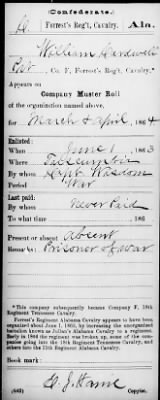 (Confederate.)
Forrest's Reg't, Cavalry. Ala.
William Hardwell
Pvt, Co. F, Forrest's Reg't, Cavalry.*
Appears on
Company Muster Roll
of the organization named above,
for March & April, 1864
Enlisted:
When June 1, 1863
Where Tuscumbia
By whom Capt. Wasdom
Period War
Last paid:
By whom Never Paid
To what time 186
Present or absent Absent
Remarks: Prisoner of War
*This company subsequently became Company F, 18th
Regiment Tennessee Cavalry.
Forrest's Regiment Alabama Cavalry appears to have been
organized about June 1, 1863, by increasing the unorganized
battalion known as Julian's Alabama Cavalry to a regiment.
Early in 1864 the regiment was broken up, some of the com-
panies going into the 18th Regiment Tennessee Cavalry, and
others into the 11th Regiment Alabama Cavalry.
Book mark:
(642) Copyist.